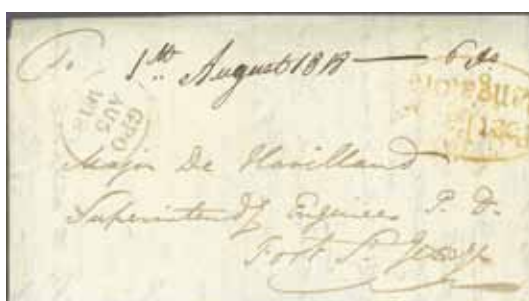 1st August 1818 — 6 As
GPO
AUG
1818
Major De Havilland
Superintendg Engineer P. D.
Fort St. George